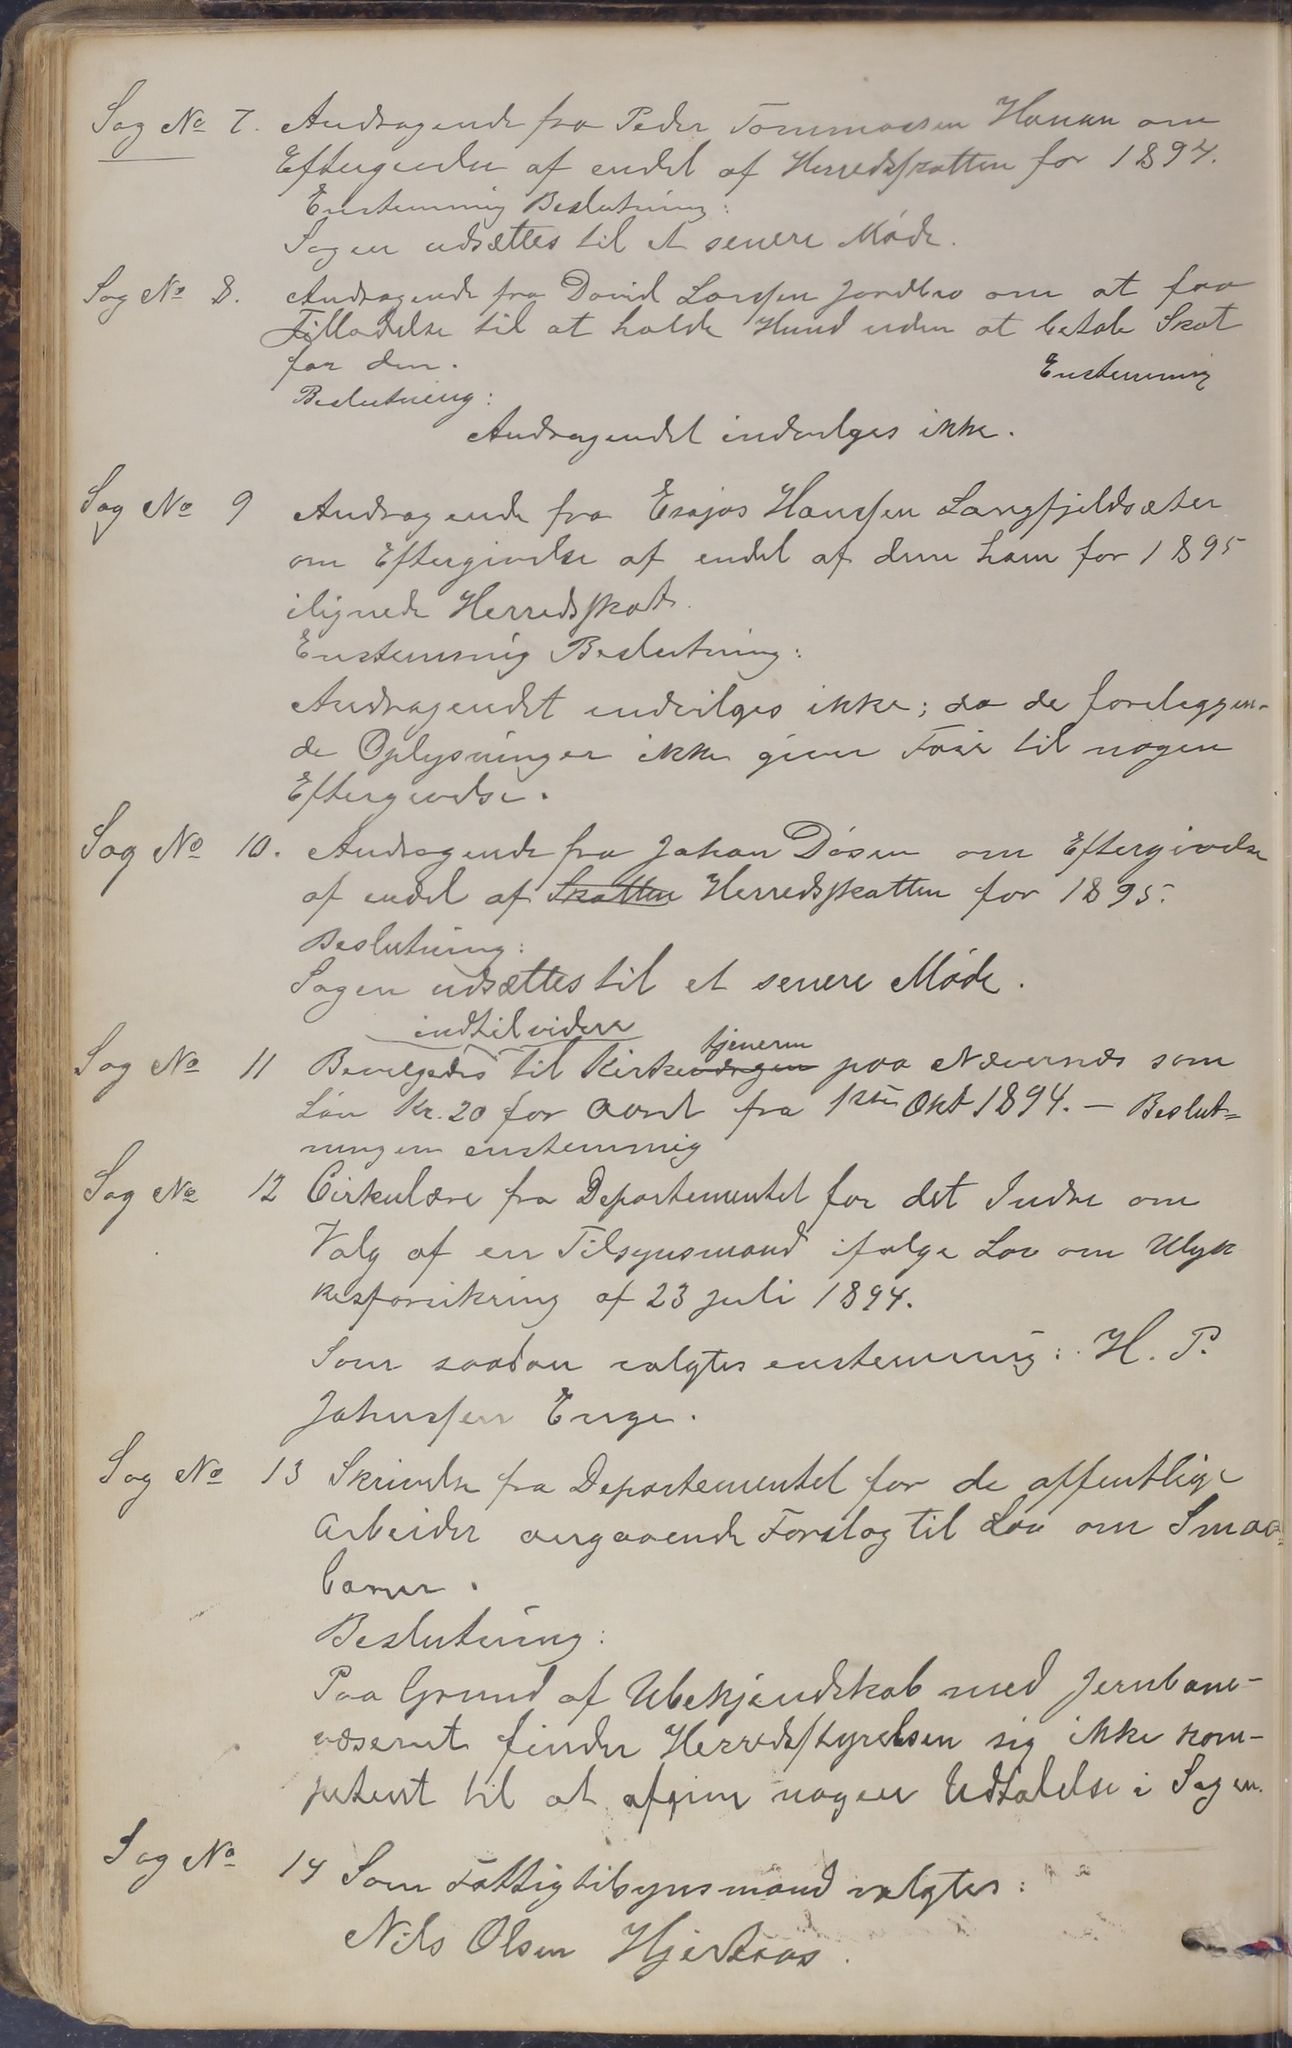 Sag No 7. Andragende fra Peder Tommassen Hanan om
Eftergivelse af endel af Herredsskatten for 1894.
Enstemmig Beslutning:
Sagen udsættes til et senere Møde.
Sag No 8. Andragende fra David Larssen Jordbro om at faa
Tilladelse til at holde Hund uden at betale Skat
for den. Enstemmig
Beslutning:
Andragendet indvilges ikke.
Sag No 9 Andragende fra Esajas Hanssen Langfjeldsæter
om Eftergivelse af endel af den ham for 1895
ilignede Herredsskat.
Enstemmig Beslutning:
Andragendet indvilges ikke; da de foreleggen-
de Oplysninger ikke giver Føie til nogen
Eftergivelse.
Sag No 10. Andragende fra Johan Dåsen om Eftergivelse
af endel af Skatten Herredsskatten for 1895.
Beslutning:
Sagen udsættes til et senere Møde.
indtilvidere
tjeneren
Sag No 11 Bevilgedes til Kirkeværgen paa Nævernes som
Løn Kr. 20 for Aaret fra 1ste Okt 1894. — Beslut=
ningen enstemmig
Sag No 12 Cirkulære fra Departementet for det Indre om
Valg af en Tilsynsmand ifølge Lov om Ulyk
kesforsikring af 23 juli 1894.
Som saadan valgtes enstemmig: H. P.
Johnssen Enge.
Sag No 13 Skrivelse fra Departementet for de offentlige
Arbeider angaaende Forslag til Lov om Smaa=
baner.
Beslutning:
Paa Grund af Ubekjendskab med Jernbane-
væsenet finder Herredsstyrelsen sig ikke kom-
petent til at afgive nogen Udtalelse i Sagen.
Sag No 14 Som Fattigtilsynsmand valgtes:
Nils Olsen Hjertaas.